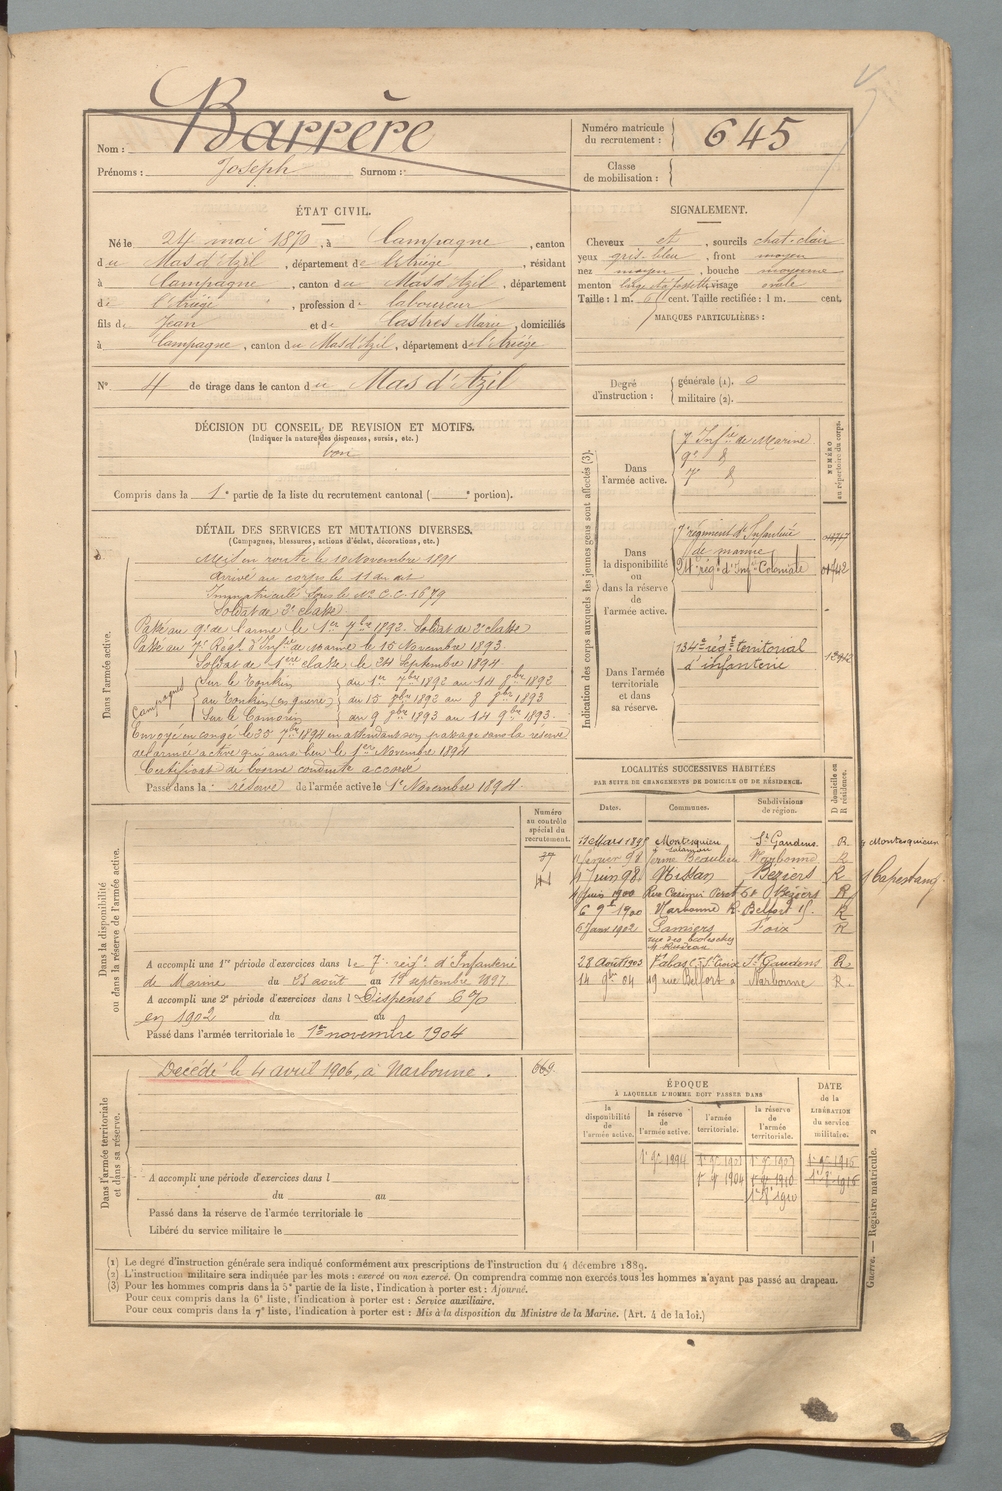 Nom : Barrère
Prénoms : Joseph Surnom :
Numéro matricule du recrutement : 645
Classe de mobilisation :
ÉTAT CIVIL.
Né le 24 mai 1870, à Campagne, canton
du Mas d'Azil, département de l'Ariège, résidant
à Campagne, canton du Mas d'Azil, département
de l'Ariège, profession de laboureur
fils de Jean et de Castres Marie, domiciliés
à Campagne, canton du Mas d'Azil, département de l'Ariège
N° 4 de tirage dans le canton du Mas d'Azil
SIGNALEMENT.
Cheveux et, sourcils chat-clair
yeux gris-bleu, front moyen
nez moyen, bouche moyenne
menton large visage ovale
Taille : 1 m. 61 cent. Taille rectifiée : 1 m. cent.
MARQUES PARTICULIÈRES :
Degré d'instruction : générale (1). 0
militaire (2).
DÉCISION DU CONSEIL DE REVISION ET MOTIFS.
(Indiquer la nature des dispenses, sursis, etc.)
bon
Compris dans la 1e partie de la liste du recrutement cantonal ( e portion).
DÉTAIL DES SERVICES ET MUTATIONS DIVERSES.
(Campagnes, blessures, actions d'éclat, décorations, etc.)
Dans l'armée active.
Mis en route le 10 Novembre 1891
Arrivé au corps le 11 du dit
Immatriculé sous le N° C.C. 1679
Soldat de 2e classe
Passé au 9e de l'arme le 1er 7bre 1892. Soldat de 2e classe
Passé au 7e Régt d'Infie de Marine le 15 Novembre 1893.
Soldat de 1ère classe le 24 Septembre 1894
Campagnes
Sur le Tonkin du 1er 7bre 1892 au 14 8bre 1892
au Tonkin (en guerre) du 15 8bre 1892 au 8 8bre 1893
Sur le Comorin du 9 8bre 1893 au 14 9bre 1893.
Envoyé en congé le 25 7bre 1894 en attendant son passage dans la réserve
de l'armée active qui aura lieu le 1er Novembre 1894
Certificat de bonne conduite accordé
Passé dans la réserve de l'armée active le 1er Novembre 1894.
Indication des corps auxquels les jeunes gens sont affectés (3).
NUMÉRO au répertoire du corps.
Dans l'armée active.
7 Infie de Marine
9e d
7e d
Dans la disponibilité ou dans la réserve de l'armée active.
7e régiment d'Infanterie
de marine
24e régt d'Infie Coloniale
Dans l'armée territoriale et dans sa réserve.
134e régt territorial
d'infanterie
LOCALITÉS SUCCESSIVES HABITÉES
PAR SUITE DE CHANGEMENTS DE DOMICILE OU DE RÉSIDENCE.
Dates. Communes. Subdivisions de région. D domicile ou R résidence.
Mars 189 Montesquieu St Gaudens R Montesquieu
98 Beaulieu Narbonne R
Juin 98 Nissan Béziers R Capestang
Juin 1900 Rue Casimir Béziers R
6 9e 1900 Narbonne R. Belfort R
5 Janv 1902 Pamiers Foix R
rue des
28 Août 1903 St Croix St Gaudens R
14 9bre 04 19 rue Belfort à Narbonne R.
Numéro au contrôle spécial du recrutement.
37
Dans la disponibilité ou dans la réserve de l'armée active.
A accompli une 1re période d'exercices dans le 7e régt d'Infanterie
de Marine du 23 août au 19 septembre 1897.
A accompli une 2e période d'exercices dans l Dispensé
en 1902 du au
Passé dans l'armée territoriale le 1er novembre 1904
Dans l'armée territoriale et dans sa réserve.
Décédé le 4 avril 1906, à Narbonne.
669.
A accompli une période d'exercices dans l
du au
Passé dans la réserve de l'armée territoriale le
Libéré du service militaire le
ÉPOQUE
À LAQUELLE L'HOMME DOIT PASSER DANS
la disponibilité de l'armée active.
la réserve de l'armée active.
l'armée territoriale.
la réserve de l'armée territoriale.
DATE de la LIBÉRATION du service militaire.
1er 9e 1894 1er 9e 1901 1er 9e 1907 1er 9e 1916
1er 9e 1904 1er 9e 1910 1er 8e 1916
1er 8e 1910
Guerre. — Registre matricule. 2
(1) Le degré d'instruction générale sera indiqué conformément aux prescriptions de l'instruction du 4 décembre 1889.
(2) L'instruction militaire sera indiquée par les mots : exercé ou non exercé. On comprendra comme non exercés tous les hommes n'ayant pas passé au drapeau.
(3) Pour les hommes compris dans la 5e partie de la liste, l'indication à porter est : Ajourné.
Pour ceux compris dans la 6e liste, l'indication à porter est : Service auxiliaire.
Pour ceux compris dans la 7e liste, l'indication à porter est : Mis à la disposition du Ministre de la Marine. (Art. 4 de la loi.)